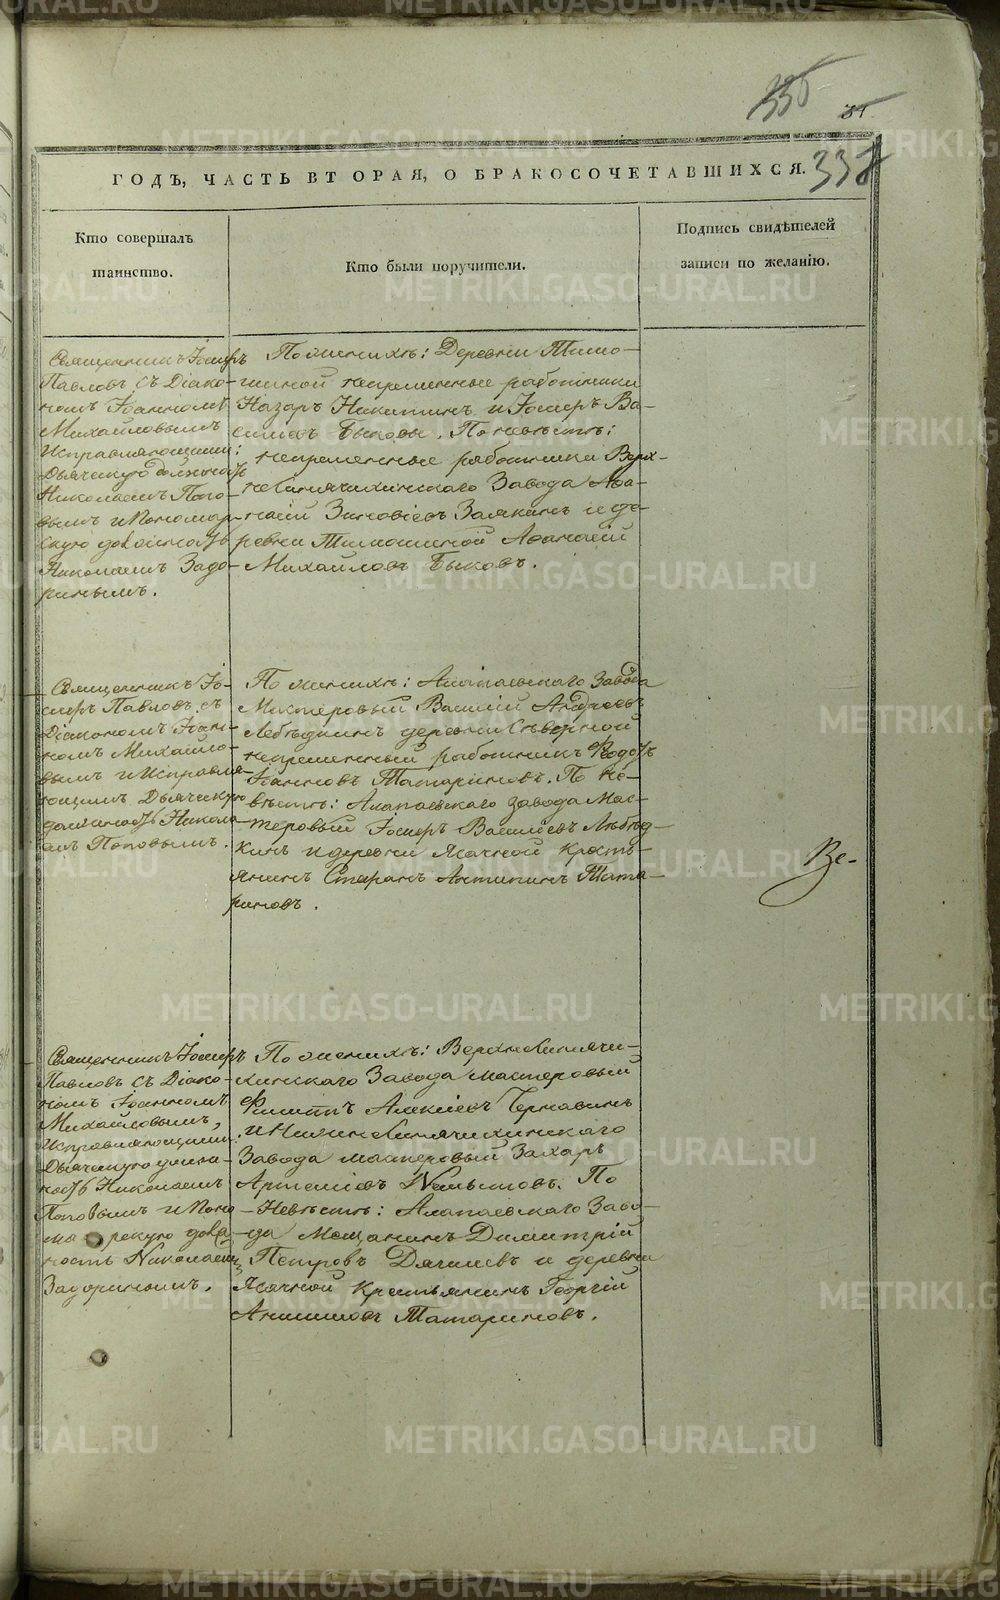 335
85
338
ГОДЪ, ЧАСТЬ ВТОРАЯ, О БРАКОСОЧЕТАВШИХСЯ.
Кто совершалъ
таинство.
Кто были поручители.
Подпись свидѣтелей
записи по желанію.
Священникъ Іосифъ
Павловъ съ Діако-
номъ Іоанномъ
Михайловымъ
Исправляющими:
Дьяческую должность
Николаемъ Попо-
вымъ и Пономар-
скую должность
Николаемъ Задо-
ринымъ.
По женихѣ: Деревни Тимо-
шиной непременные работники
Назаръ Никитинъ и Іосифъ Ва-
сильевъ Быковы. По невѣстѣ:
непременные работники Верх-
несинячихинскаго Завода Афа-
насій Зиновіевъ Заякинъ и де-
ревни Тимошиной Афанасій
Михайловъ Быковъ.
Священникъ Іо-
сифъ Павловъ съ
Діакономъ Іоан-
номъ Михайло-
вымъ и Исправля-
ющимъ Дьяческую
должность Никола-
емъ Поповымъ.
По женихѣ: Алапаевскаго Завода
Мастеровый Василій Андреевъ
Лебѣдкинъ деревни Сѣверной
непременный работникъ Ѳедотъ
Іоанновъ Татариновъ. По не-
вѣстѣ: Алапаевскаго завода Мас-
теровый Іосифъ Васильевъ Лебѣд-
кинъ и деревни Ясачной Кресть-
янинъ Стефанъ Антипинъ Тата-
риновъ.
Ве-
Священникъ Іосифъ
Павловъ съ Діако-
номъ Іоанномъ
Михайловымъ,
Исправляющими:
Дьяческую долж-
ность Николаемъ
Поповымъ и Поно-
марскую долж-
ность Николаемъ
Задоринымъ.
По женихѣ: Верхнесинячи-
хинскаго Завода мастеровый
Филиппъ Алексіевъ Чернавинъ
и Нижнесинячихинскаго
Завода мастеровый Захаръ
Артеміевъ Немытовъ. По
Невѣстѣ: Алапаевскаго Заво-
да Мещанинъ Димитрій
Петровъ и деревни
Ясачной крестьянинъ Георгій
Анисимовъ Татариновъ.
METRIKI.GASO-URAL.RU